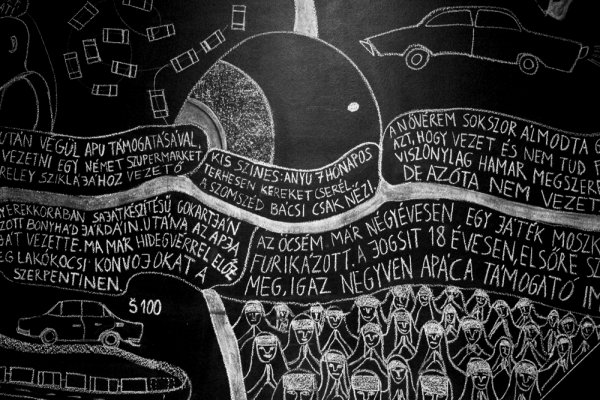 UTÁN VÉGÜL APU TÁMOGATÁSÁVAL
VEZETNI EGY NÉMET SZUPERMARKET
RELEY SZIKLÁJÁHOZ VEZETŐ
KIS SZINES: ANYU 7 HÓNAPOS
TERHESEN KEREKET CSERÉL,
A SZOMSZÉD BÁCSI CSAK NÉZI.
A NŐVÉREM SOKSZOR ÁLMODTA
AZT, HOGY VEZET ÉS NEM TUD F
VISZONYLAG HAMAR MEGSZERE
DE AZÓTA NEM VEZET
YEREKKORÁBAN SAJÁTKÉSZÍTÉSŰ GOKARTJÁN
ZOTT BONYHÁD JÁRDÁIN. UTÁNA AZ APJA
VEZETTE. MA MÁR HIDEGVÉRREL ELŐZ
G LAKÓKOCSI KONVOJOKAT A
SZERPENTINEN.
AZ ÖCSÉM MÁR NÉGYÉVESEN EGY JÁTÉK MOSZK
FURIKÁZOTT. A JOGSIT 18 ÉVESEN, ELSŐRE SZ
MEG, IGAZ NEGYVEN APÁCA TÁMOGATÓ IM
Š100